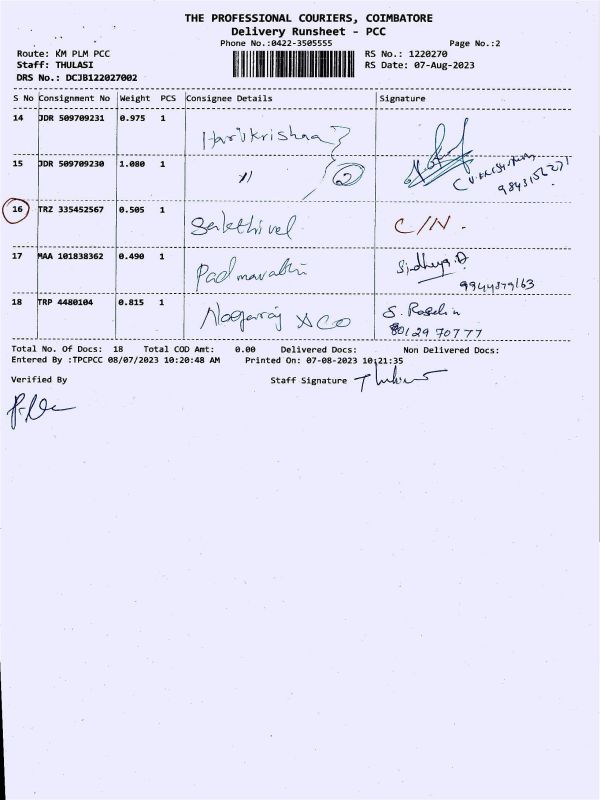 THE PROFESSIONAL COURIERS, COIMBATORE
Delivery Runsheet - PCC
Phone No.:0422-3505555
Page No.:2
Route: KM PLM PCC
RS No.: 1220270
Staff: THULASI
RS Date: 07-Aug-2023
DRS No.: DCJB122027002
S No Consignment No Weight PCS Consignee Details Signature
14 JDR 509709231 0.975 1 Harikrishna
15 JDR 509709230 1.080 1 〃 2
16 TRZ 335452567 0.505 1 Sakthivel C/N.
17 MAA 101838362 0.490 1 Padmavathi Sindhuya.D
18 TRP 4480104 0.815 1 & Co S. Roselin
Total No. Of Docs: 18 Total COD Amt: 0.00 Delivered Docs: Non Delivered Docs:
Entered By :TPCPCC 08/07/2023 10:20:48 AM Printed On: 07-08-2023 10:21:35
Verified By Staff Signature